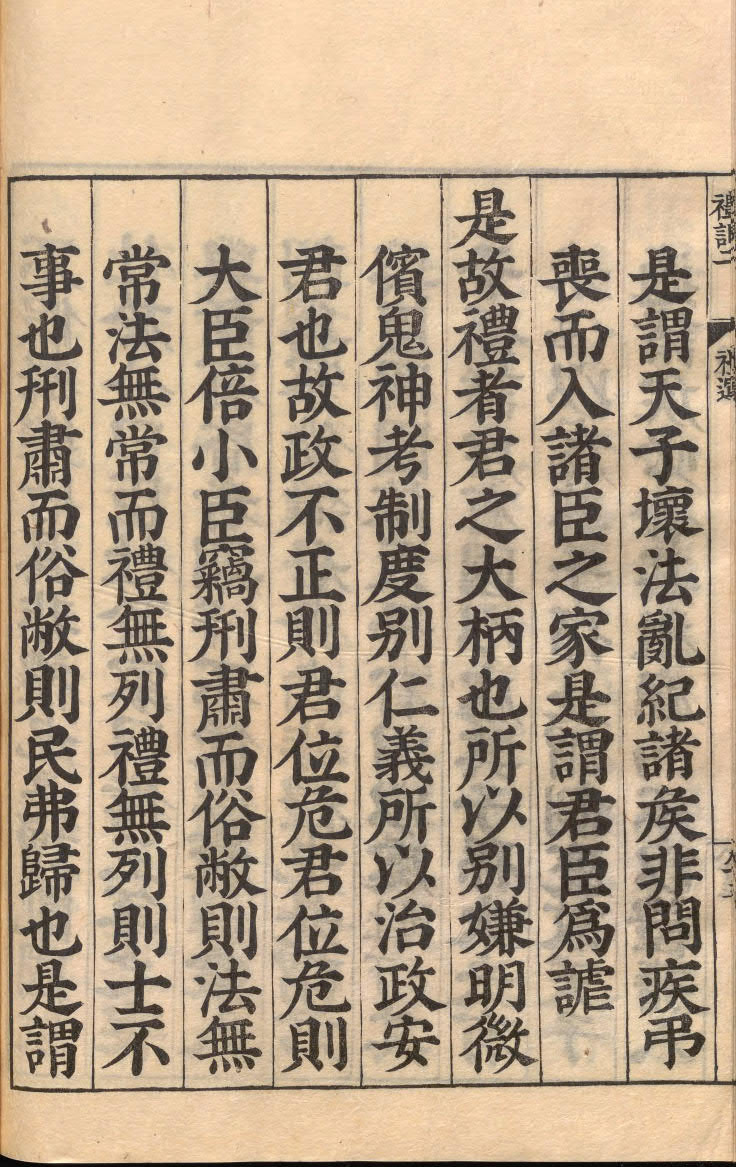 禮記二
礼運
是謂天子壞法亂紀諸矦非問疾弔
喪而入諸臣之家是謂君臣爲謔
是故禮者君之大柄也所以别嫌明微
儐鬼神考制度别仁義所以治政安
君也故政不正則君位危君位危則
大臣倍小臣竊刑肅而俗敝則法無
常法無常而禮無列禮無列則士不
事也刑肅而俗敝則民弗歸也是謂